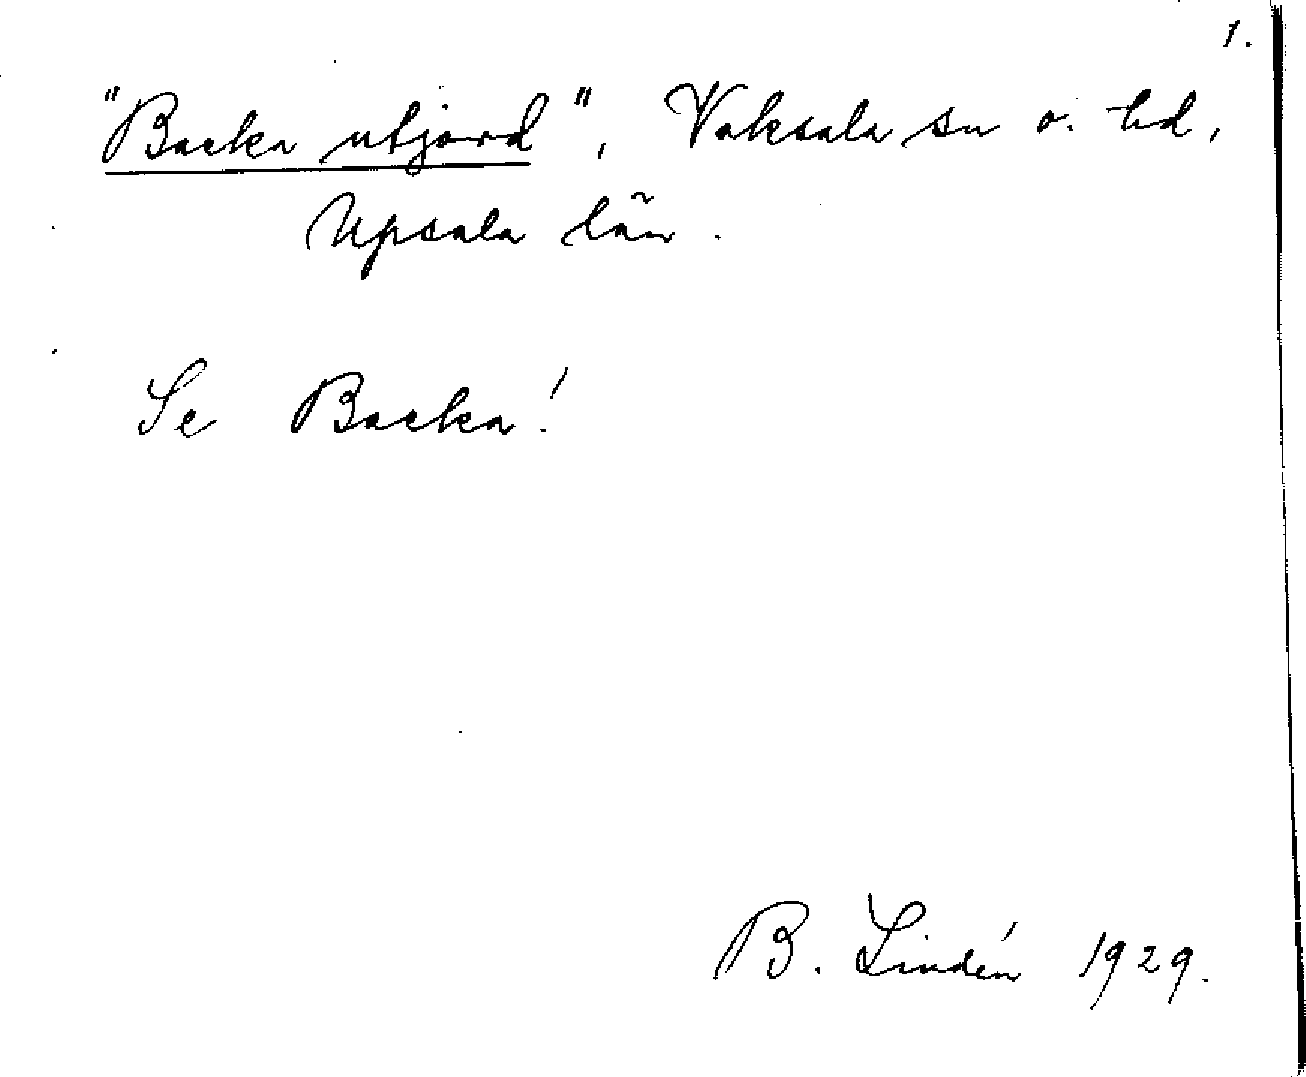 1.
"Backa utjord", Vaksala sn o. hd,
Upsala län.
Se Backa!
B. Lindén 1929.